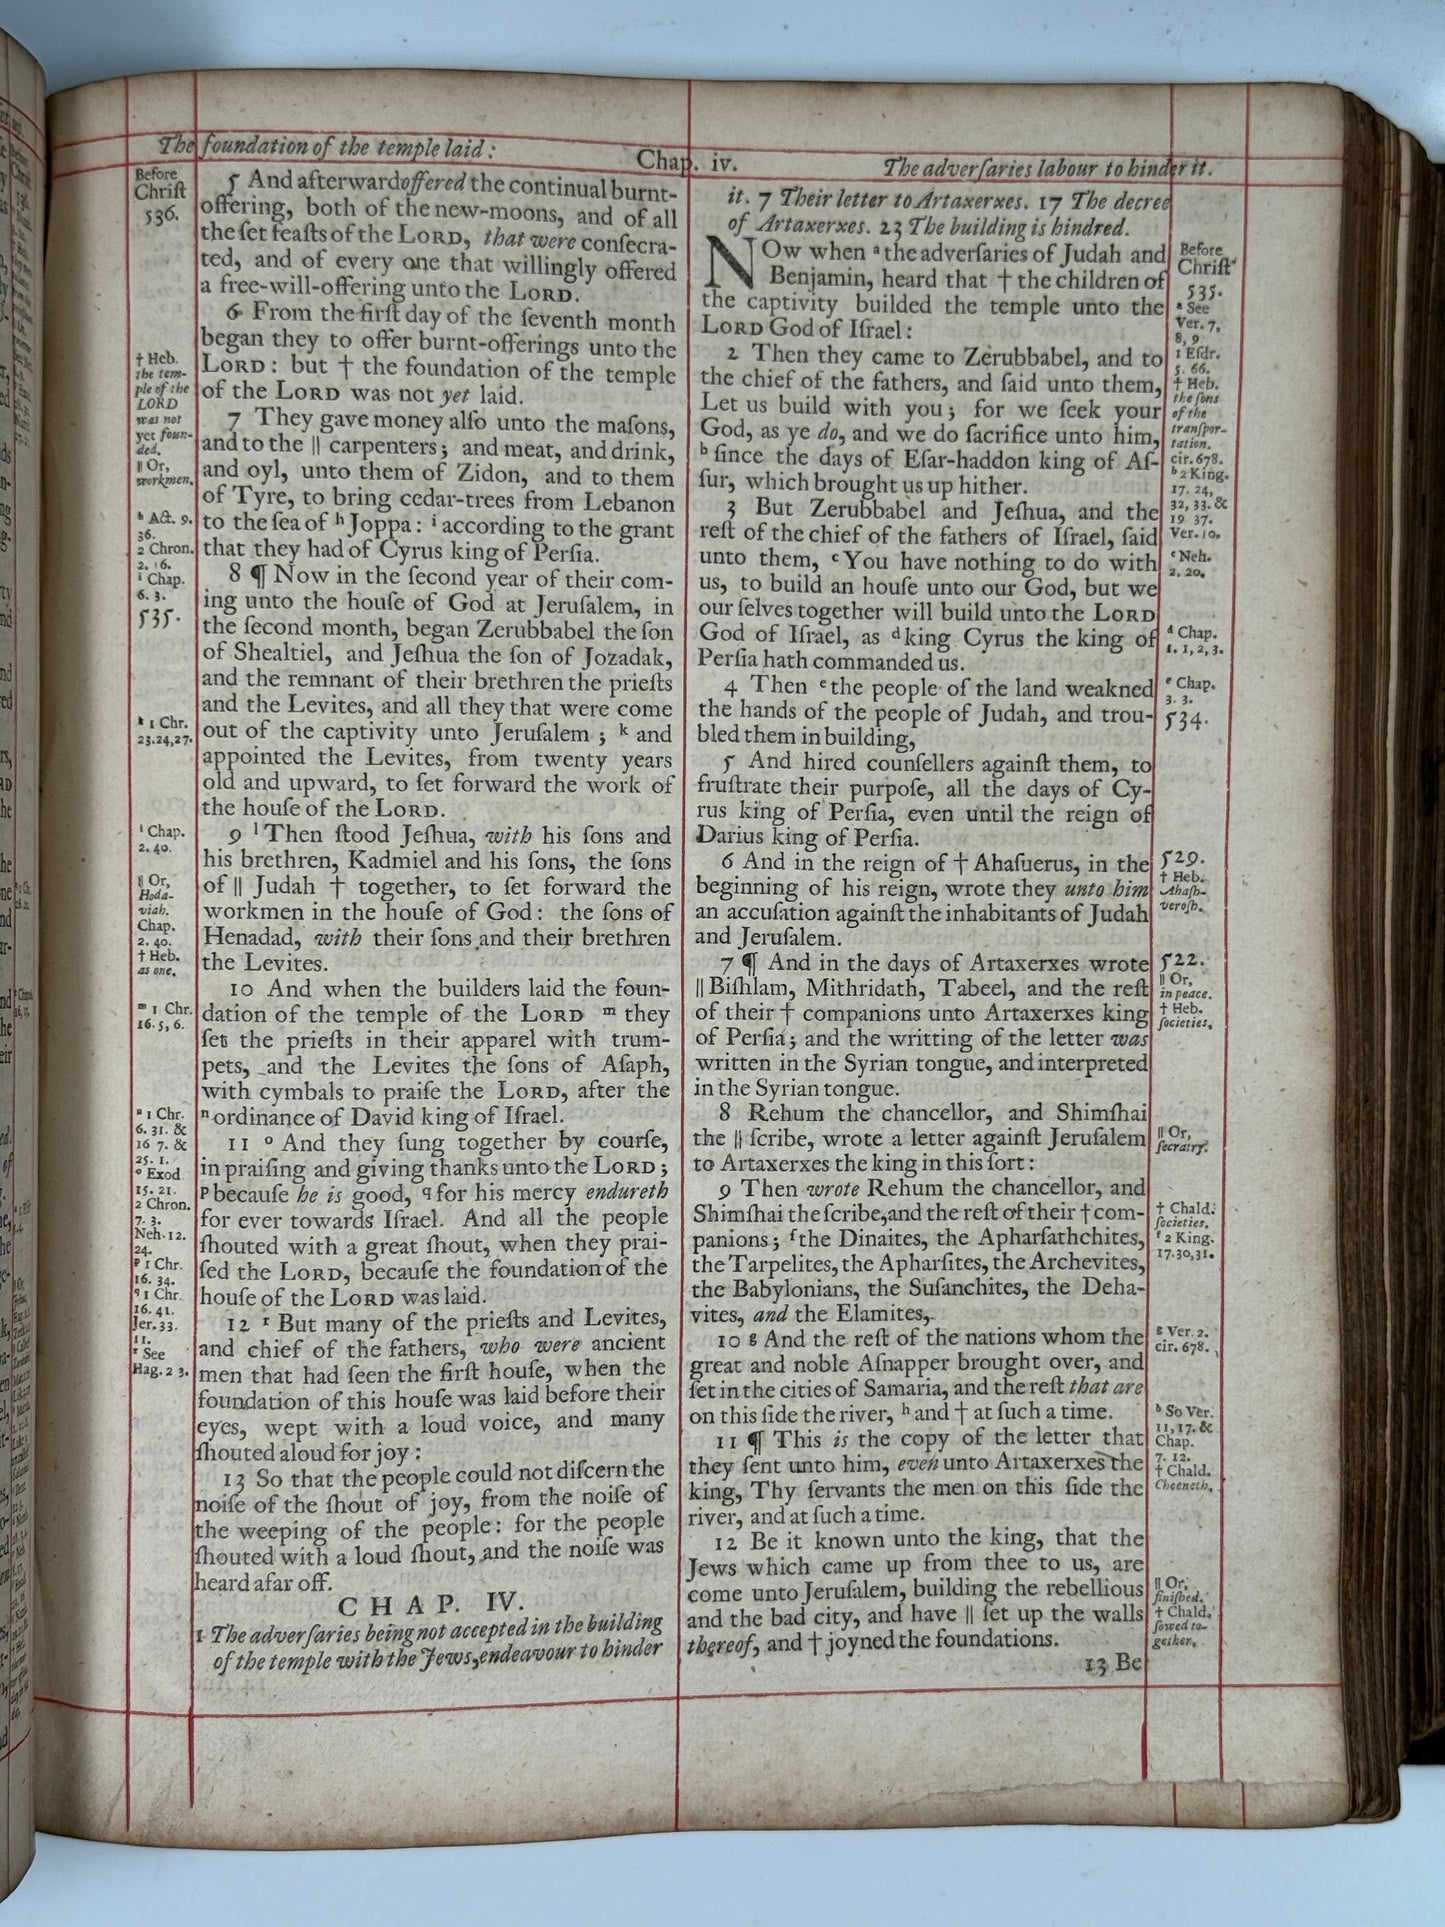 The foundation of the temple laid:
Chap. iv.
The adverſaries labour to hinder it.
Before
Chriſt
536.
† Heb.
the tem-
ple of the
LORD
was not
yet foun-
ded.
|| Or,
workmen.
h Act. 9.
36.
2 Chron.
2. 16.
i Chap.
6. 3.
535.
k 1 Chr.
23.24,27.
l Chap.
2. 40.
|| Or,
Hoda-
viah.
Chap.
2. 40.
† Heb.
as one.
m 1 Chr.
16. 5, 6.
n 1 Chr.
6. 31. &
16 7. &
25. 1.
o Exod
15. 21.
2 Chron.
7. 3.
Neh. 12.
24.
p 1 Chr.
16. 34.
q 1 Chr.
16. 41.
Jer. 33.
11.
r See
Hag. 2 3.
5 And afterward offered the continual burnt-
offering, both of the new-moons, and of all
the ſet feaſts of the LORD, that were conſecra-
ted, and of every one that willingly offered
a free-will-offering unto the LORD.
6 From the firſt day of the ſeventh month
began they to offer burnt-offerings unto the
LORD: but † the foundation of the temple
of the LORD was not yet laid.
7 They gave money alſo unto the maſons,
and to the || carpenters; and meat, and drink,
and oyl, unto them of Zidon, and to them
of Tyre, to bring cedar-trees from Lebanon
to the ſea of h Joppa: i according to the grant
that they had of Cyrus king of Perſia.
8 ¶ Now in the ſecond year of their com-
ing unto the houſe of God at Jeruſalem, in
the ſecond month, began Zerubbabel the ſon
of Shealtiel, and Jeſhua the ſon of Jozadak,
and the remnant of their brethren the prieſts
and the Levites, and all they that were come
out of the captivity unto Jeruſalem; k and
appointed the Levites, from twenty years
old and upward, to ſet forward the work of
the houſe of the LORD.
9 l Then ſtood Jeſhua, with his ſons and
his brethren, Kadmiel and his ſons, the ſons
of || Judah † together, to ſet forward the
workmen in the houſe of God: the ſons of
Henadad, with their ſons and their brethren
the Levites.
10 And when the builders laid the foun-
dation of the temple of the LORD m they
ſet the prieſts in their apparel with trum-
pets, and the Levites the ſons of Aſaph,
with cymbals to praiſe the LORD, after the
n ordinance of David king of Iſrael.
11 o And they ſung together by courſe,
in praiſing and giving thanks unto the LORD;
p becauſe he is good, q for his mercy endureth
for ever towards Iſrael. And all the people
ſhouted with a great ſhout, when they prai-
ſed the LORD, becauſe the foundation of the
houſe of the LORD was laid.
12 r But many of the prieſts and Levites,
and chief of the fathers, who were ancient
men that had ſeen the firſt houſe, when the
foundation of this houſe was laid before their
eyes, wept with a loud voice, and many
ſhouted aloud for joy:
13 So that the people could not diſcern the
noiſe of the ſhout of joy, from the noiſe of
the weeping of the people: for the people
ſhouted with a loud ſhout, and the noiſe was
heard afar off.
CHAP. IV.
1 The adverſaries being not accepted in the building
of the temple with the Jews, endeavour to hinder
it. 7 Their letter to Artaxerxes. 17 The decree
of Artaxerxes. 23 The building is hindred.
NOw when a the adverſaries of Judah and
Benjamin, heard that † the children of
the captivity builded the temple unto the
LORD God of Iſrael:
2 Then they came to Zerubbabel, and to
the chief of the fathers, and ſaid unto them,
Let us build with you; for we ſeek your
God, as ye do, and we do ſacrifice unto him,
b ſince the days of Eſar-haddon king of Aſ-
ſur, which brought us up hither.
3 But Zerubbabel and Jeſhua, and the
reſt of the chief of the fathers of Iſrael, ſaid
unto them, c You have nothing to do with
us, to build an houſe unto our God, but we
our ſelves together will build unto the LORD
God of Iſrael, as d king Cyrus the king of
Perſia hath commanded us.
4 Then e the people of the land weakned
the hands of the people of Judah, and trou-
bled them in building,
5 And hired counſellers againſt them, to
fruſtrate their purpoſe, all the days of Cy-
rus king of Perſia, even until the reign of
Darius king of Perſia.
6 And in the reign of † Ahaſuerus, in the
beginning of his reign, wrote they unto him
an accuſation againſt the inhabitants of Judah
and Jeruſalem.
7 ¶ And in the days of Artaxerxes wrote
|| Biſhlam, Mithridath, Tabeel, and the reſt
of their † companions unto Artaxerxes king
of Perſia; and the writting of the letter was
written in the Syrian tongue, and interpreted
in the Syrian tongue.
8 Rehum the chancellor, and Shimſhai
the || ſcribe, wrote a letter againſt Jeruſalem
to Artaxerxes the king in this ſort:
9 Then wrote Rehum the chancellor, and
Shimſhai the ſcribe, and the reſt of their † com-
panions; f the Dinaites, the Apharſathchites,
the Tarpelites, the Apharſites, the Archevites,
the Babylonians, the Suſanchites, the Deha-
vites, and the Elamites,
10 g And the reſt of the nations whom the
great and noble Aſnapper brought over, and
ſet in the cities of Samaria, and the reſt that are
on this ſide the river, h and † at ſuch a time.
11 ¶ This is the copy of the letter that
they ſent unto him, even unto Artaxerxes the
king, Thy ſervants the men on this ſide the
river, and at ſuch a time.
12 Be it known unto the king, that the
Jews which came up from thee to us, are
come unto Jeruſalem, building the rebellious
and the bad city, and have || ſet up the walls
thereof, and † joyned the foundations.
13 Be
Before
Chriſt
535.
a See
Ver. 7,
8, 9
1 Eſdr.
5. 66.
† Heb.
the ſons
of the
tranſpor-
tation.
cir. 678.
b 2 King.
17. 24,
32, 33. &
19 37.
Ver. 10.
c Neh.
2. 20.
d Chap.
1. 1, 2, 3.
e Chap.
3. 3.
534.
529.
† Heb.
Ahaſh-
veroſh.
522.
|| Or,
in peace.
† Heb.
ſocieties.
|| Or,
ſecratry.
† Chald.
ſocieties.
f 2 King.
17.30,31.
g Ver. 2.
cir. 678.
h So Ver.
11, 17. &
Chap.
7. 12.
† Chald.
Cheeneth.
|| Or,
finiſhed.
† Chald.
ſowed to-
gether.